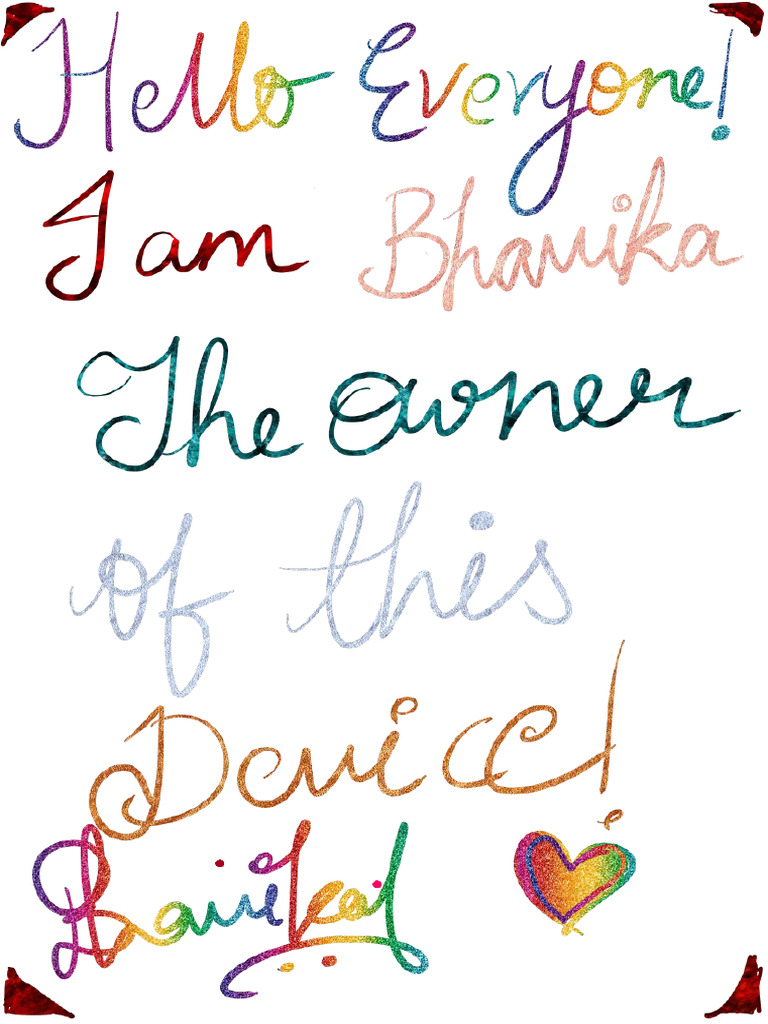 Hello Everyone!
I am Bhavika
The Owner
of this
Device!